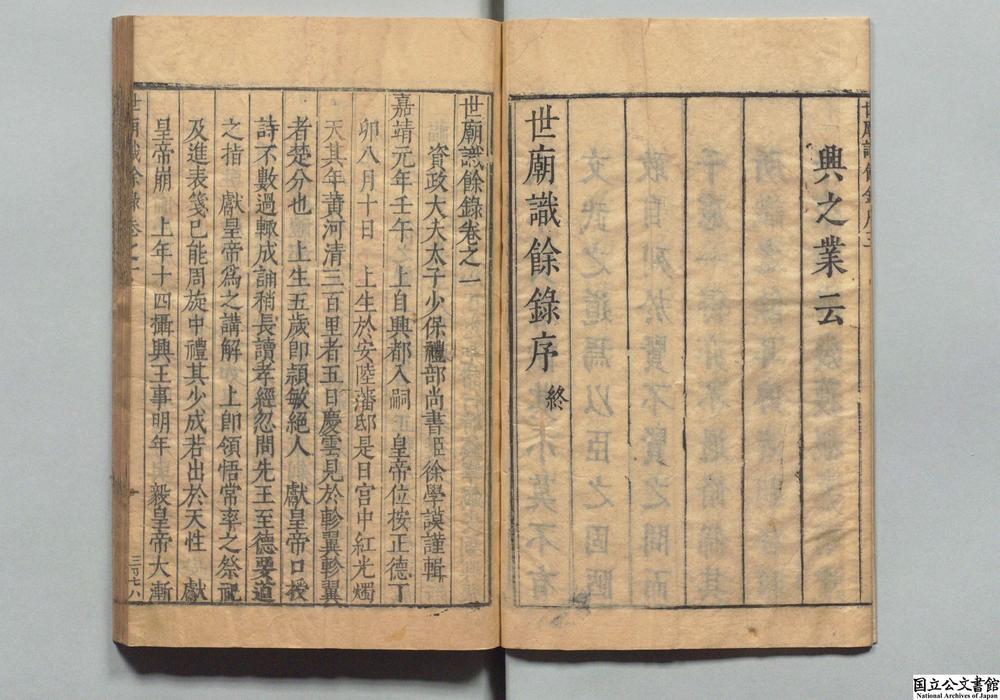 興之業云
世廟識餘錄序 終
世廟識餘錄卷之一
資政大夫太子少保禮部尚書臣徐學謨謹輯
嘉靖元年壬午 上自興都入嗣 皇帝位按正德丁
卯八月十日 上生於安陸藩邸是日宮中紅光燭
天其年黃河清三百里者五日慶雲見於軫翼軫翼
者楚分也 上生五歲即頴敏絕人 獻皇帝口授
詩不數過輒成誦稍長讀孝經忽問先王至德要道
之指 獻皇帝為之講解 上即領悟常率之祭祀
及進表箋已能周旋中禮其少成若出於天性 獻
皇帝崩 上年十四攝興王事明年 毅皇帝大漸
国立公文書館
National Archives of Japan